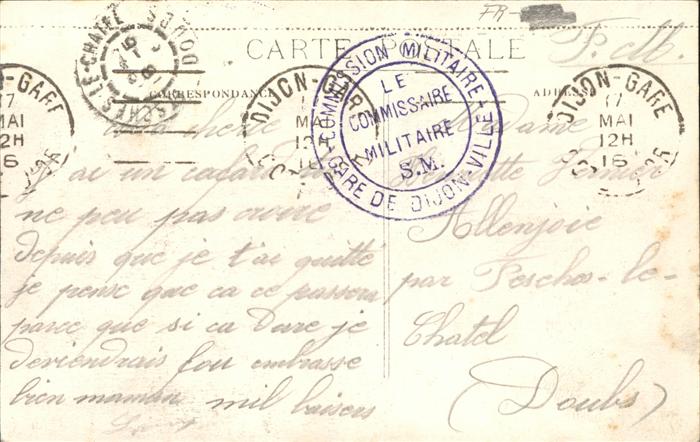 FR-
CARTE POSTALE
F. M.
CORRESPONDANCE
ADRES
DOUBS
LE-CHATEL
DIJON-GARE
17
MAI
12H
16
COMMISSION MILITAIRE
GARE DE DIJON-VILLE
LE
COMMISSAIRE
MILITAIRE
S.M.
DIJON-GARE
17
MAI
12H
16
DIJON-GARE
MAI
12
16
Ma cherie
J'ai un cafard
ne peu pas ecrire
depuis que je t'ai quitté
je pense que ca ce passera
parce que si ca dure je
deviendrais fou embrasse
bien maman mil baisers
Madame
Fernier
Allenjoie
par Peschas-le-
Chatel
(Doubs)